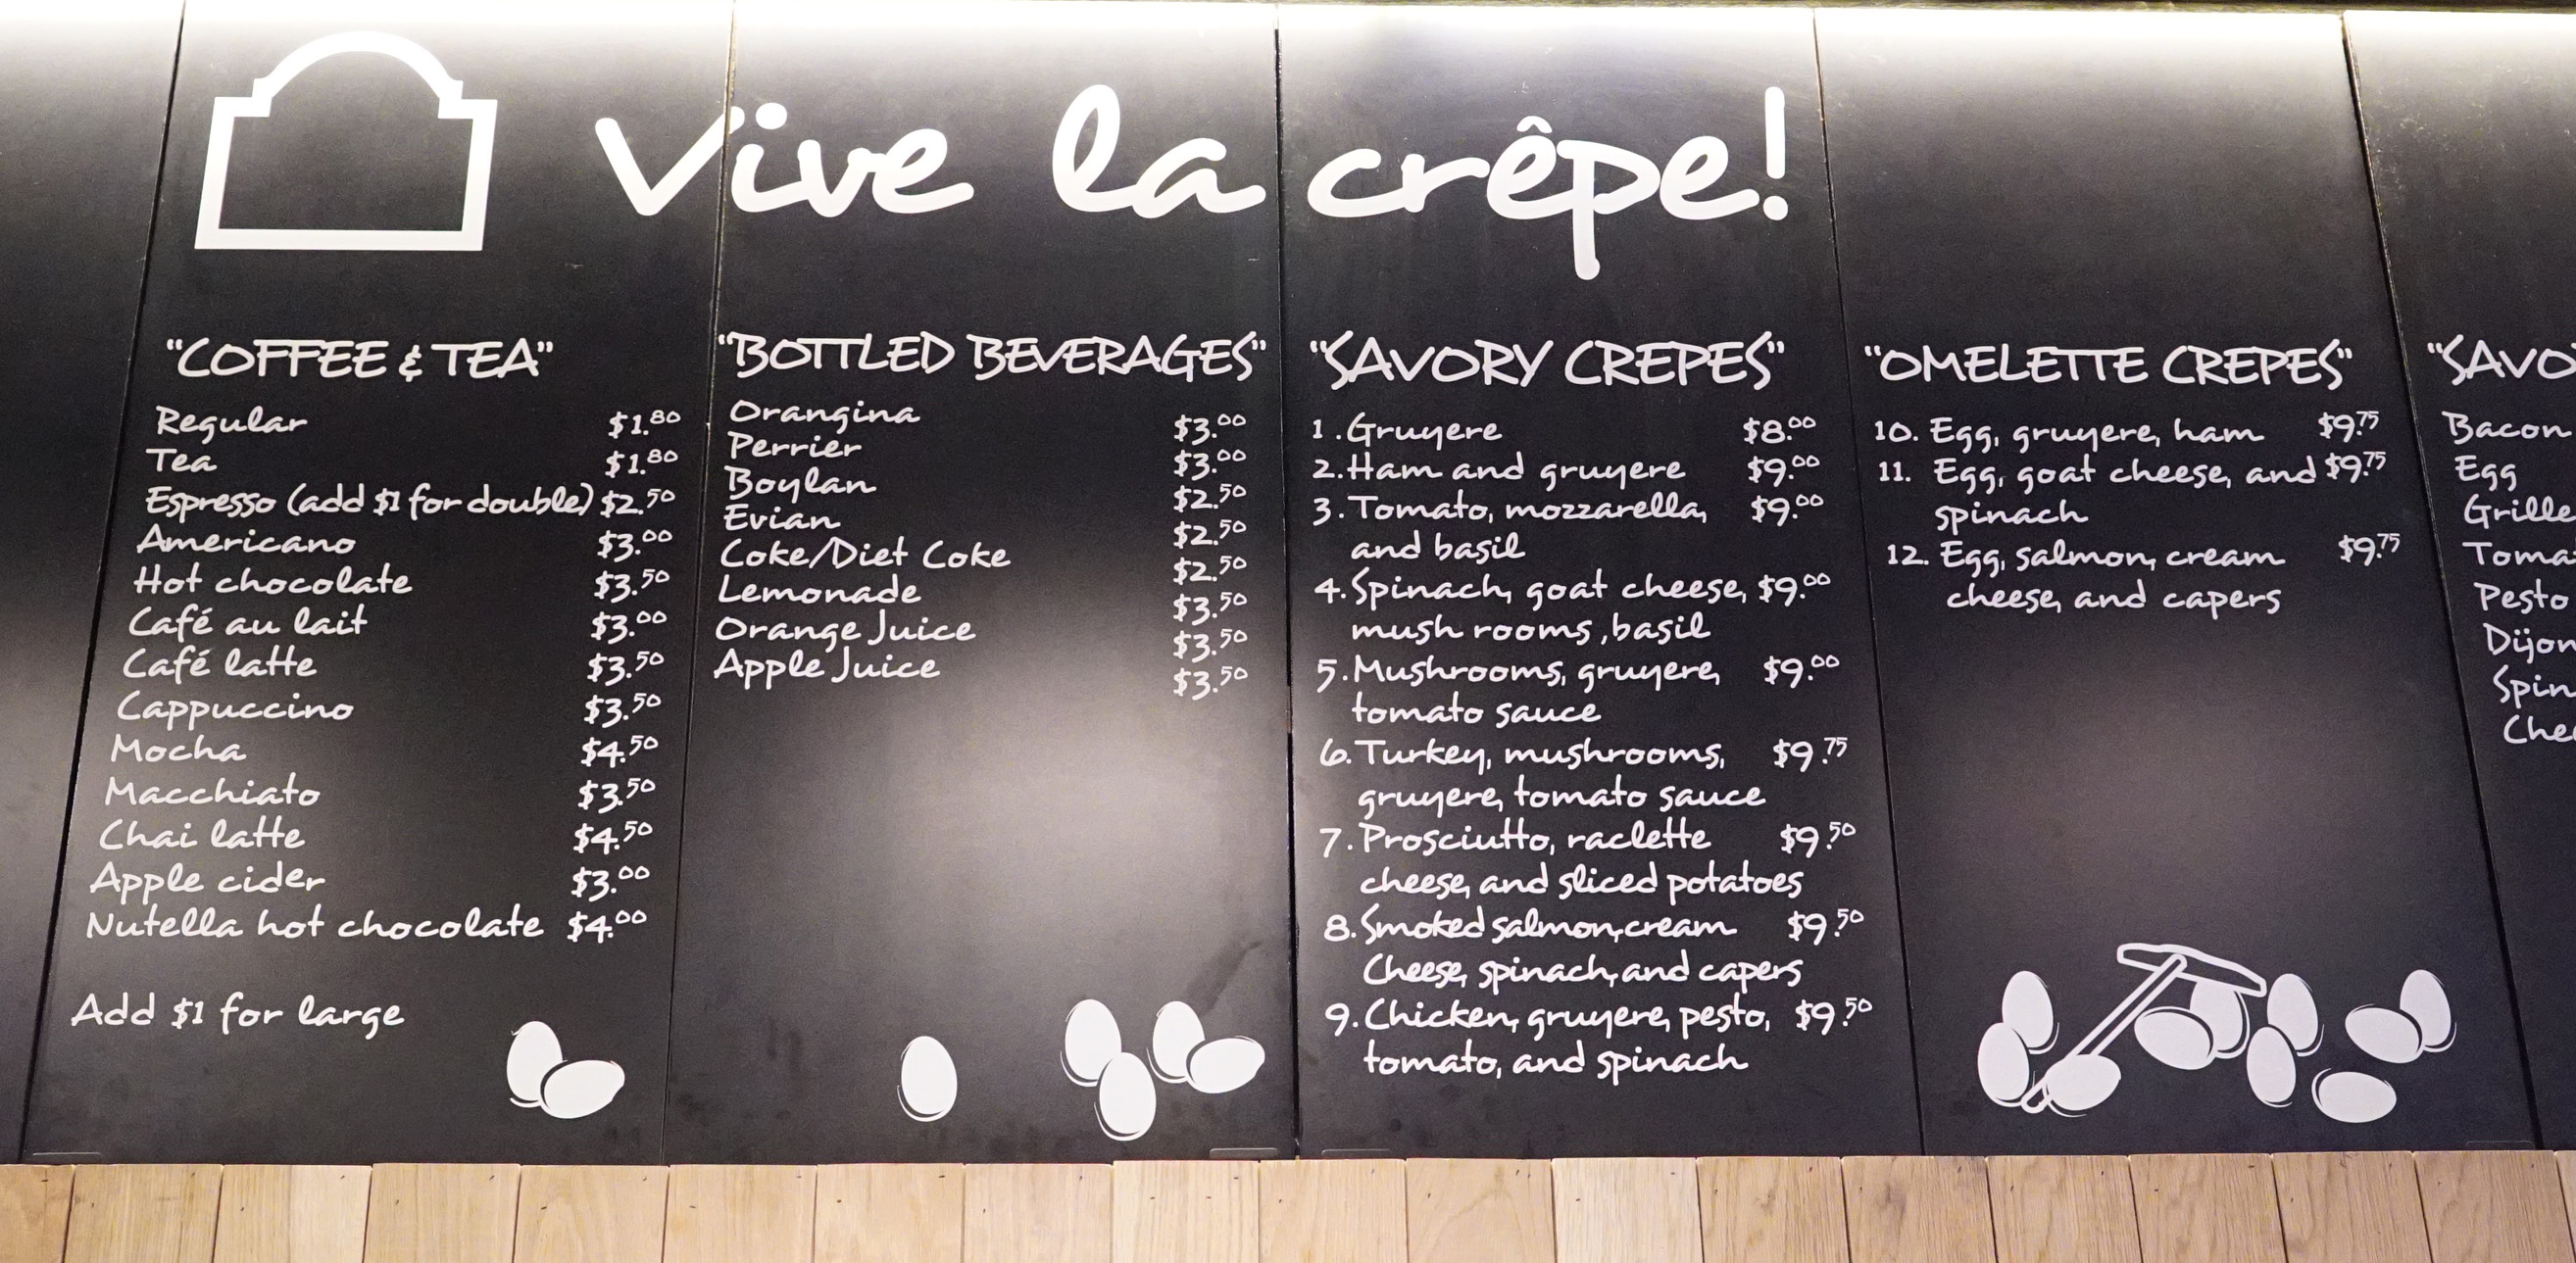 Vive la crêpe!
"COFFEE & TEA"
Regular $1.80
Tea $1.80
Espresso (add $1 for double) $2.50
Americano $3.00
Hot chocolate $3.50
Café au lait $3.00
Café latte $3.50
Cappuccino $3.50
Mocha $4.50
Macchiato $3.50
Chai latte $4.50
Apple cider $3.00
Nutella hot chocolate $4.00
Add $1 for large
"BOTTLED BEVERAGES"
Orangina $3.00
Perrier $3.00
Boylan $2.50
Evian $2.50
Coke/Diet Coke $2.50
Lemonade $3.50
Orange Juice $3.50
Apple Juice $3.50
"SAVORY CREPES"
1. Gruyere $8.00
2. Ham and gruyere $9.00
3. Tomato, mozzarella, $9.00
and basil
4. Spinach, goat cheese, $9.00
mush rooms, basil
5. Mushrooms, gruyere, $9.00
tomato sauce
6. Turkey, mushrooms, $9.75
gruyere, tomato sauce
7. Prosciutto, raclette $9.50
cheese, and sliced potatoes
8. Smoked salmon, cream $9.50
Cheese, spinach, and capers
9. Chicken, gruyere, pesto, $9.50
tomato, and spinach
"OMELETTE CREPES"
10. Egg, gruyere, ham $9.75
11. Egg, goat cheese, and $9.75
spinach
12. Egg, salmon, cream $9.75
cheese, and capers
Bacon
Egg
Pesto